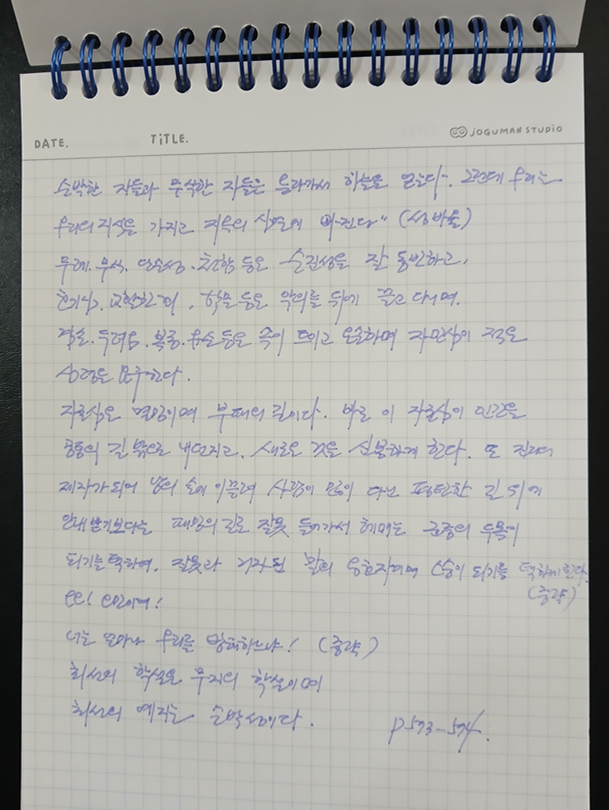 DATE. TiTLE. JOGUMAN STUDIO
순박한 자들과 무식한 자들은 올라가서 하늘을 얻는다". 그런데 우리는
우리의 지식을 가지고 지옥의 심연에 빠진다" (성 바울)
무례. 무식. 단순성. 등은 순진성을 잘 동반하고,
호기심, 교활한 학문 등은 악의를 뒤에 끌고 다니며.
겸손. 두려움. 복종. 등은 속이 트이고 온순하며 자만심이 적은
심령을 요구한다.
자존심은 멸망이며 부패의 길이다. 바로 이 자존심이 인간을
공통의 길 밖으로 내던지고, 새로운 것을 신봉하게 한다. 또 진리의
제자가 되어 남의 손에 이끌려 사람이 많이 다닌 평탄한 길 위에
안내받기보다는 패망의 길로 잘못 들어가서 헤매는 군중의 두목이
되기를 택하며, 잘못과 거짓된 스승이 되기를 택하게 한다.
(중략)
오! 오만이여!
너는 얼마나 우리를 방해하느냐! (중략)
최선의 학설은 무지의 학설이며
최선의 예지는 순박성이다. p573-574.